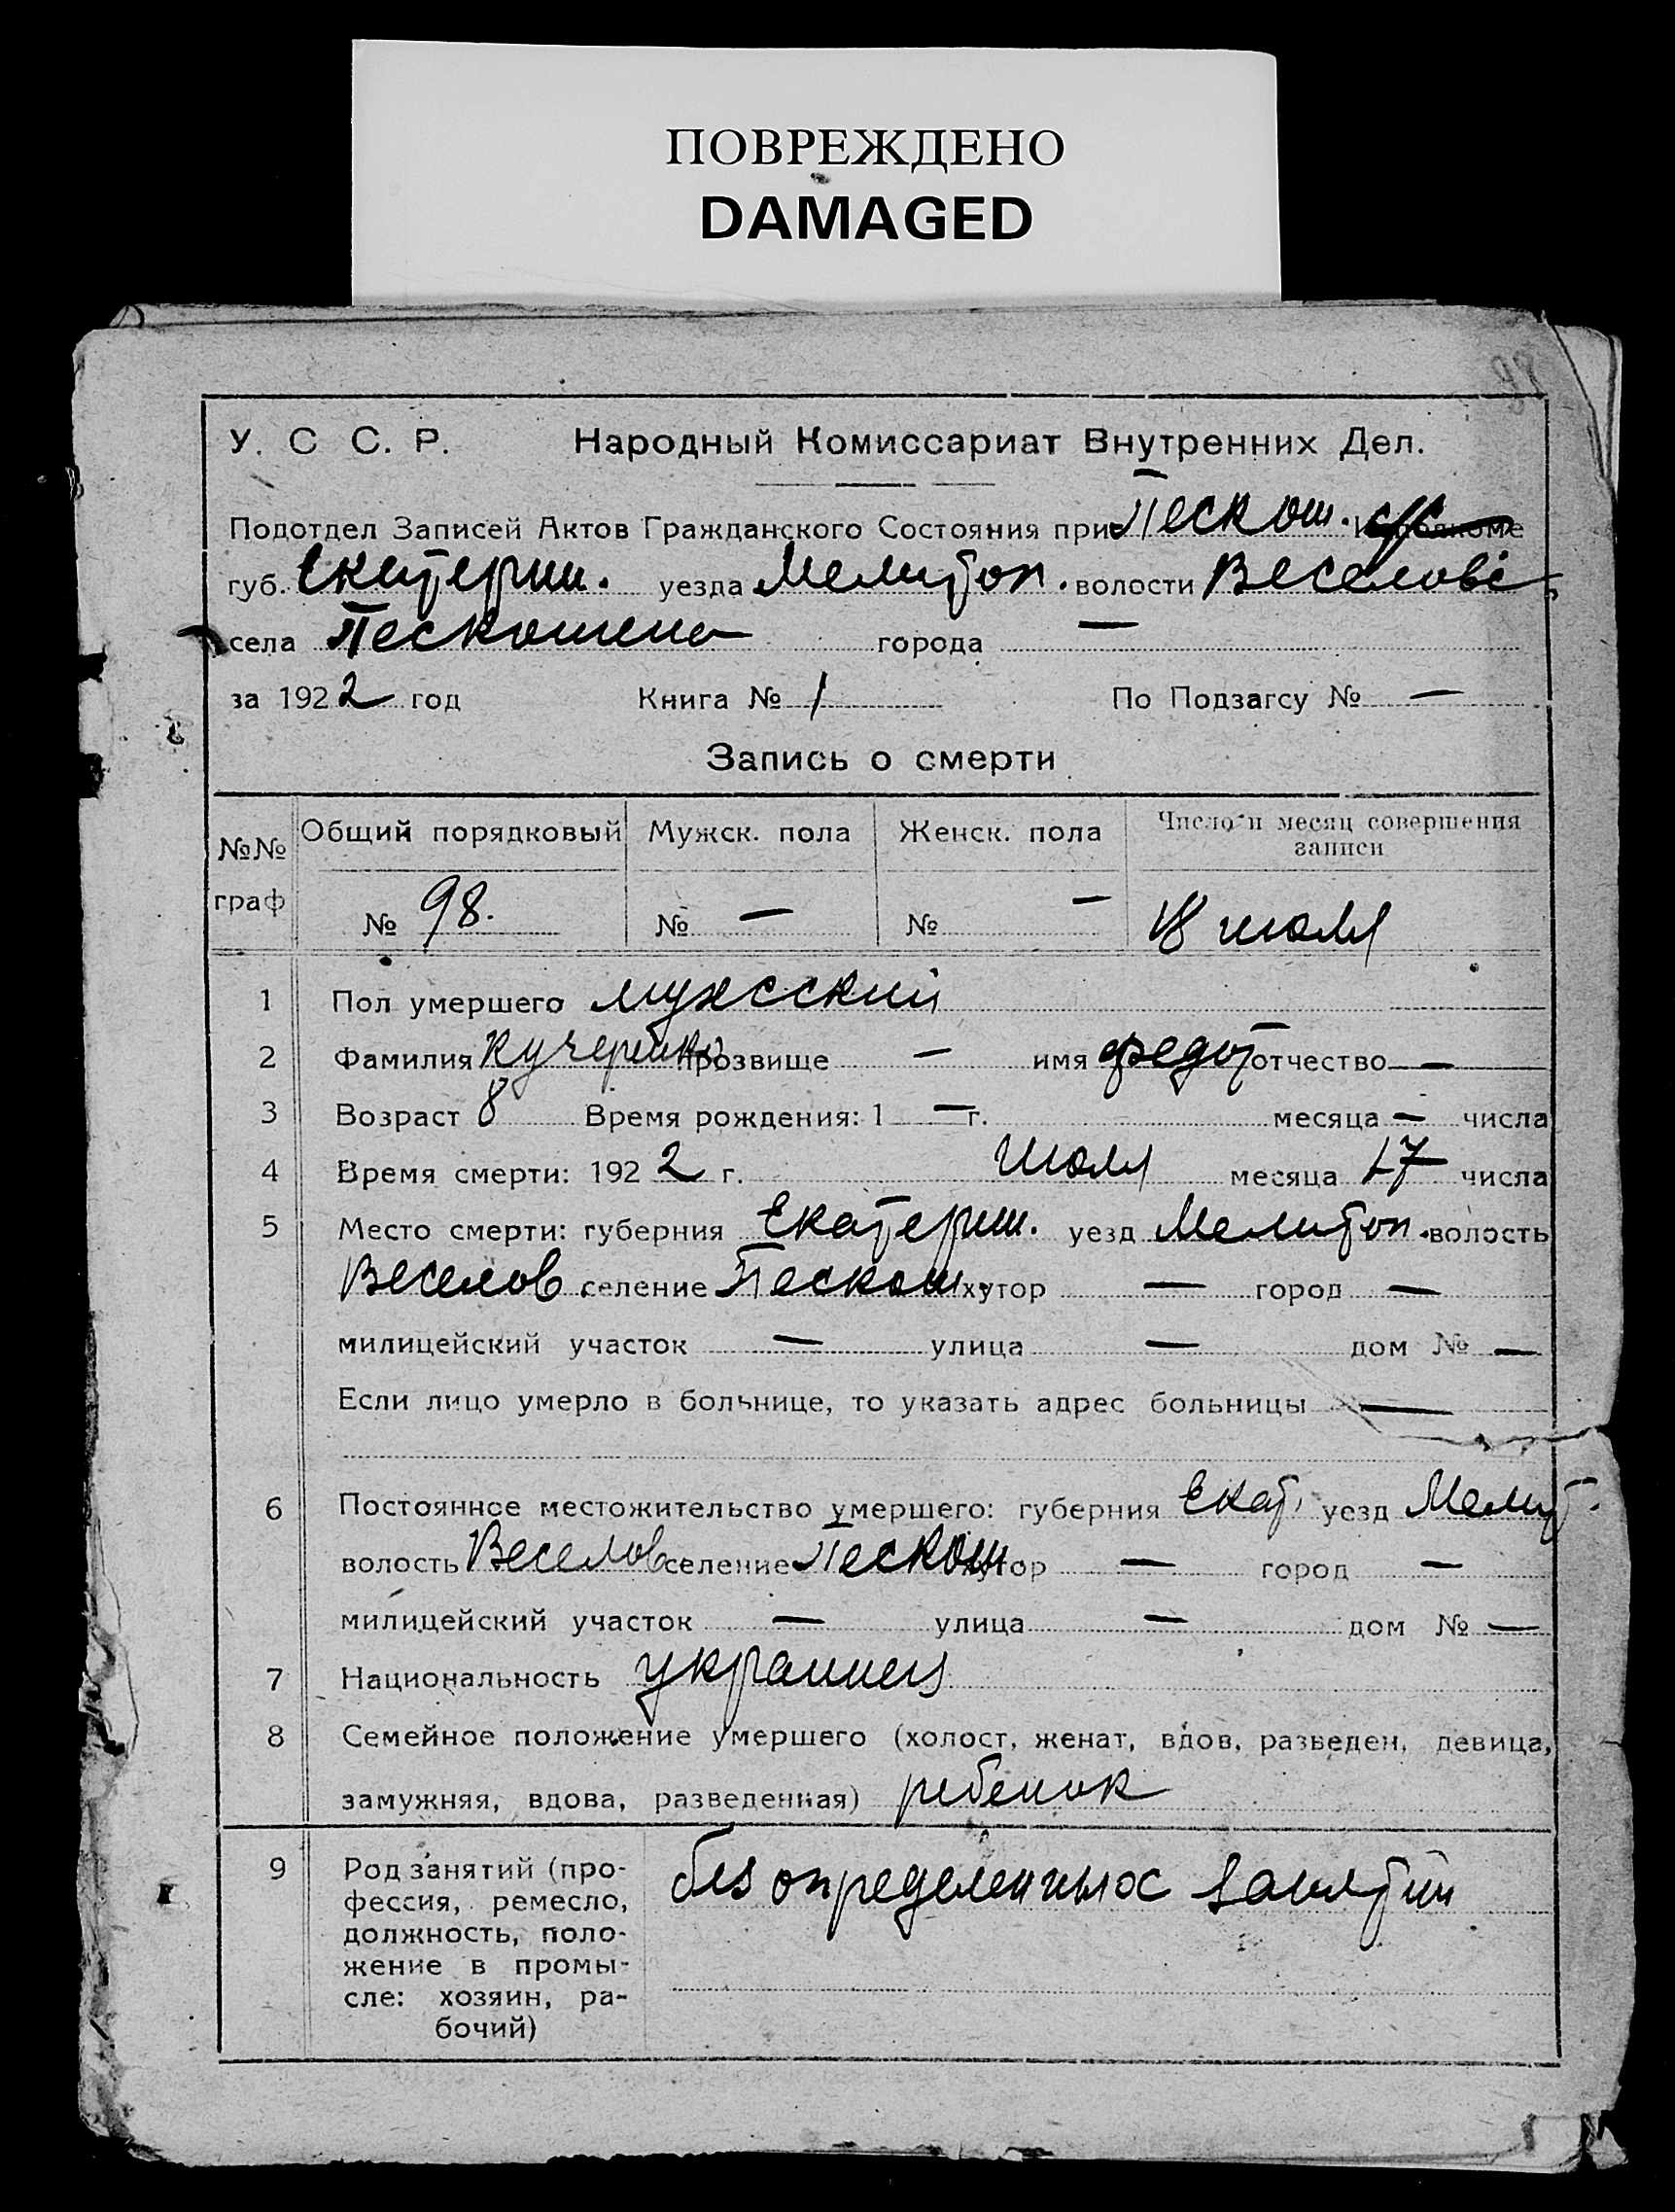 ПОВРЕЖДЕНО
DAMAGED
У. С С. Р. Народный Комиссариат Внутренних Дел.
Подотдел Записей Актов Гражданского Состояния при Пескош.
губ. Екатерин. уезда Мелитоп. волости Веселовс
села Пескошено города —
за 1922 год Книга № 1 По Подзагсу № —
Запись о смерти
№№ граф Общий порядковый Мужск. пола Женск. пола Число и месяц совершения записи
№ 98. № — № — 18 июля
1 Пол умершего мужсский
2 Фамилия Кучеренко прозвище — имя Федот отчество —
3 Возраст 8 Время рождения: 1 — г. месяца — числа
4 Время смерти: 1922 г. Июля месяца 17 числа
5 Место смерти: губерния Екатерин. уезд Мелитоп. волость
Веселов селение Пескош. хутор — город —
милицейский участок — улица — дом № —
Если лицо умерло в больнице, то указать адрес больницы —
6 Постоянное местожительство умершего: губерния Екат. уезд Мелит.
волость Веселов селение Пескош. хутор — город —
милицейский участок — улица — дом № —
7 Национальность украинец
8 Семейное положение умершего (холост, женат, вдов, разведен, девица,
замужняя, вдова, разведенная) ребенок
9 Род занятий (про-
фессия, ремесло,
должность, поло-
жение в промы-
сле: хозяин, ра-
бочий)
без определенных занятий